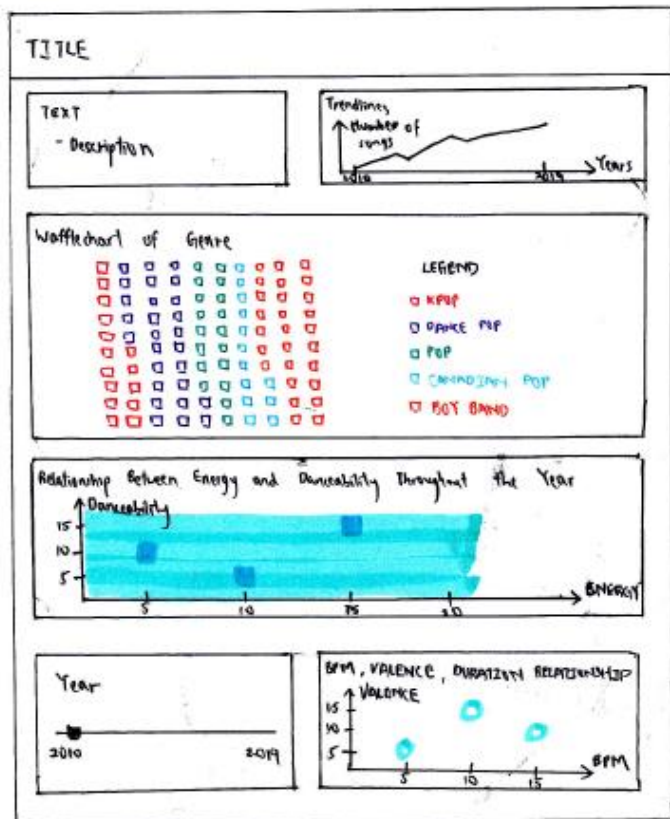 TITLE
TEXT
- Description
Trendlines
Number of
songs
Years
2010
2019
Wafflechart of Genre
LEGEND
KPOP
DANCE POP
POP
CANADIAN POP
BOY BAND
Relationship Between Energy and Danceability Throughout the Year
Danceability
15
10
5
5
10
ENERGY
Year
2010
2019
BPM, VALENCE, DURATION RELATIONSHIP
VALENCE
15
10
5
5
10
15
BPM